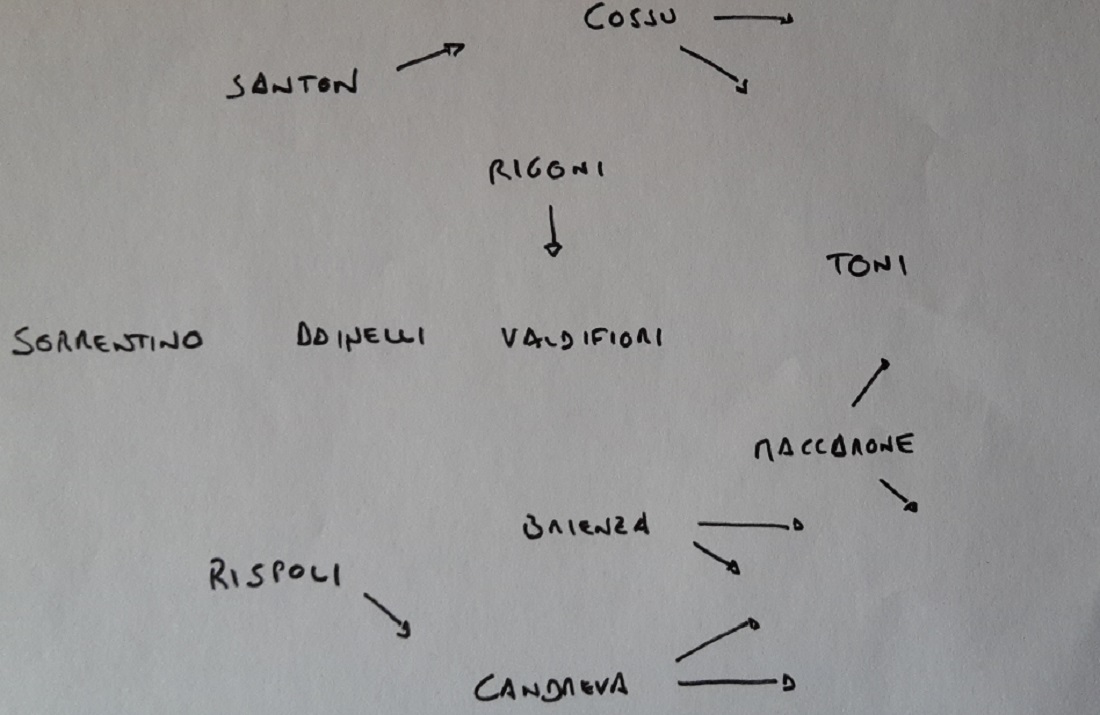 COSSU
SANTON
RIGONI
TONI
SORRENTINO
ODINELLI
VALDIFIORI
MACCARONE
BRIENZA
RISPOLI
CANDREVA